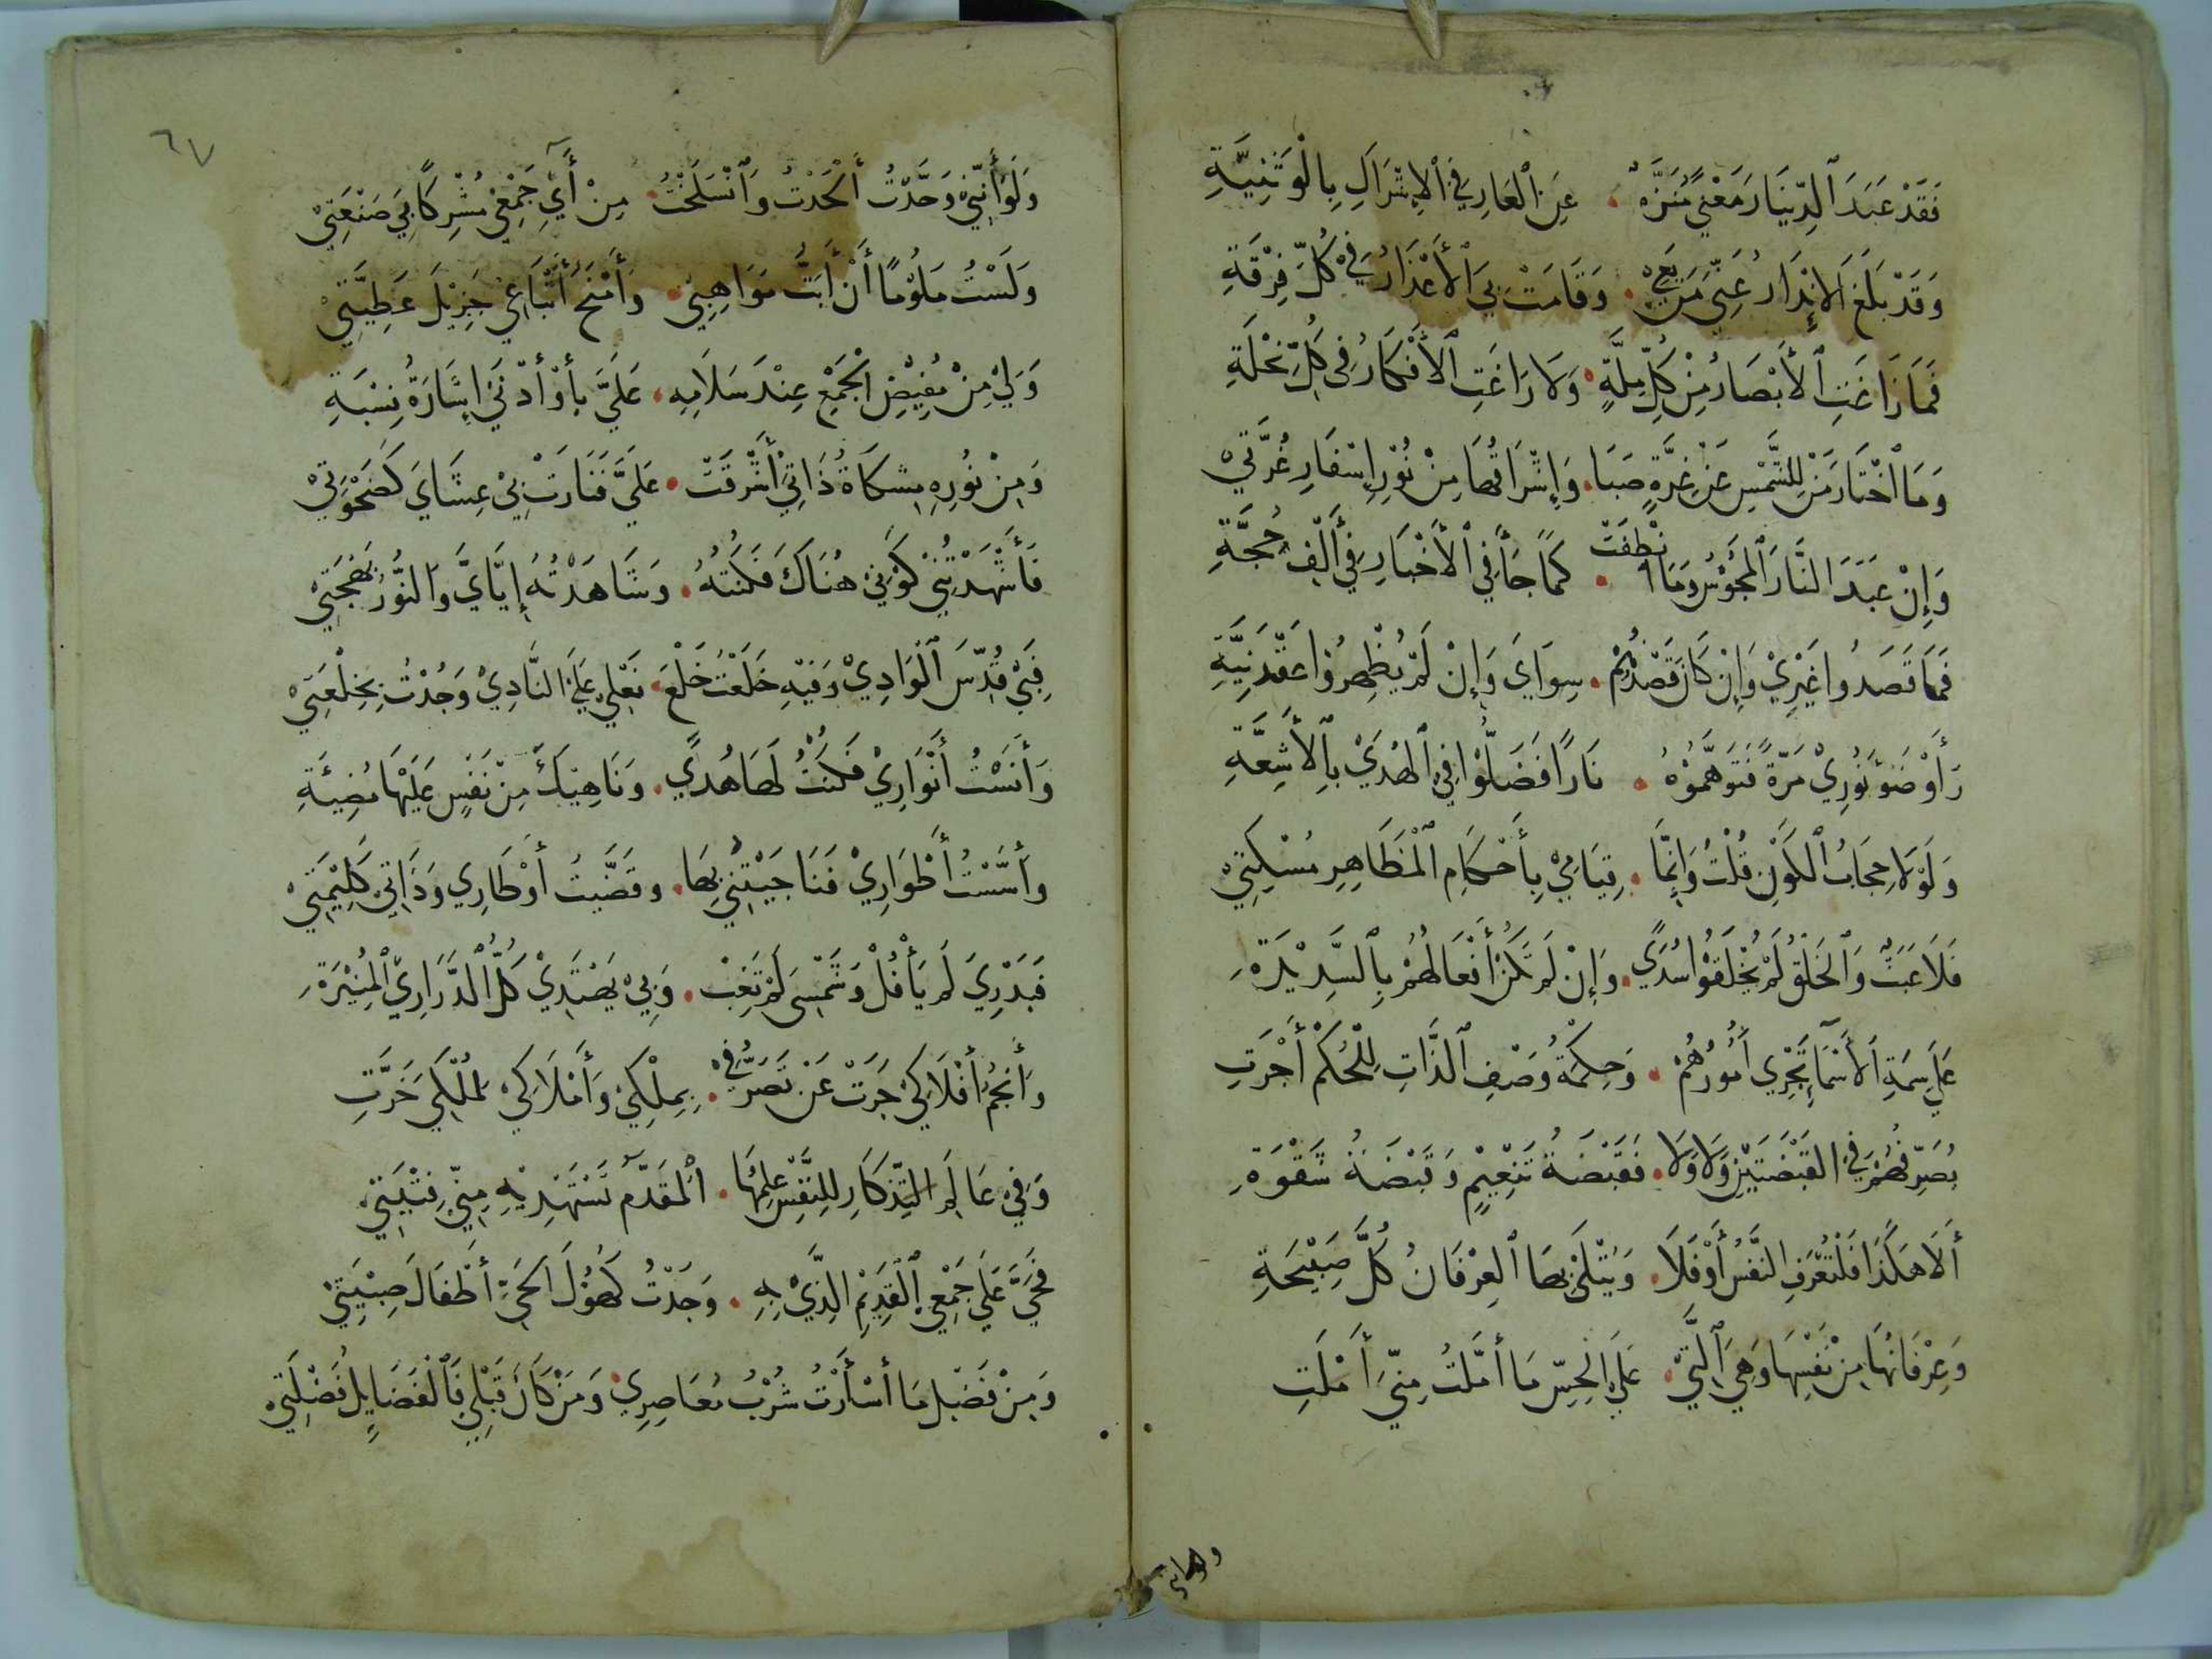 فَقَدْ عَبَدَ ٱلدِّينَارَ مَعْنًي مُنَزَّهٌ ۰ عَنِ ٱلْعَارِ فِي ٱلْإِشْرَاكِ بِالْوَثَنِيَّةِ
وَقَدْ بَلَغَ ٱلْإِنْذَارُ عَنِّي مَنْ يَعِيْ ۰ وَقَامَتْ بِيَ ٱلْأَعْذَارُ فِيْ كُلِّ فِرْقَةِ
فَمَا زَاغَتِ ٱلْأَبْصَارُ مِنْ كُلِّ مِلَّةٍ ۰ وَلَا رَاغَتِ ٱلْأَفْكَارُ فِي كُلِّ نِحْلَةِ
وَمَا ٱخْتَارَ مَنْ لِلشَّمْسِ عَنْ غِرَّةٍ صَبَا ۰ وَإِشْرَاقُهَا مِنْ نُوْرِ إِسْفَارِ غُرَّتِيْ
وَإِنْ عَبَدَ النَّارَ ٱلْمَجُوْسُ وَمَا انْطفَتْ ۰ كَمَا جَآءَ فِي ٱلْأَخْبَارِ فِي أَلْفِ حُجَّةِ
فَمَا قَصَدُوا غَيْرِيْ وَإِنْ كَانَ قَصْدُهُمْ ۰ سِوَايَ وَإِنْ لَمْ يُظْهِرُوْا عَقْدَ نِيَّةِ
رَأَوْ ضَوْءَ نُوْرِيْ مَرَّةً فَتَوَهَّمُوْهُ ۰ نَارًا فَضَلُّوْا فِي ٱلْهُدَيْ بِٱلْأَشِعَّةِ
وَلَوْلَا حِجَابُ ٱلْكَوْنِ قُلْتُ وَإِنَّمَا ۰ قِيَامِيْ بِأَحْكَامِ ٱلْمَظَاهِرِ مُسْكِتِيْ
فَلَا عَبَثٌ وَٱلْخَلْقُ لَمْ يُخْلَقُوْا سُدًي ۰ وَإِنْ لَمْ تَكُنْ أَفْعَالُهُمْ بِٱلسَّدِيْدَةِ
عَلَي سِمَةِ ٱلْأَسْمَآءِ تَجْرِي أُمُوْرُهُمْ ۰ وَحِكْمَةُ وَصْفِ ٱلذَّاتِ لِلْحُكْمِ أَجْرَتِ
يُصَرِّفُهُمْ فِي القَبْضَتَيْنِ وَلَا وَلَا ۰ فَقَبْضَةُ تَنْعِيْمٍ وَقَبْضَةُ شَقْوَةِ
أَلَا هَكَذَا فَلْتَعْرِفِ النَّفْسُ أَوْ فَلَا ۰ وَيُتْلَيْ بِهَا ٱلْعِرْفَانُ كُلَّ صَبِيْحَةِ
وَعِرْفَانُهَا مِنْ نَفْسِهَا وَهِيَ ٱلَّتِيْ ۰ عَلَي الْحِسِّ مَا أَمَّلْتُ مِنِّي أَمْلَتِ
٦٧
وَلَوْ أَنَّنِيْ وَحَّدْتُ أَلْحَدْتُ وَٱنْسَلَخْتُ ۰ مِنْ آيِ جَمْعِيْ مُشْرِكًا بِي صَنْعَتِيْ
وَلَسْتُ مَلُوْمًا أَنْ أَبُثَّ مَوَاهِبِيْ ۰ وَأَمْنَحُ أَتْبَاعِيْ جَزِيْلَ عَطِيَّتِيْ
وَلِيْ مِنْ مُفِيْضِ الْجَمْعِ عِنْدَ سَلَامِهِ ۰ عَلَيَّ بِأَوْ أَدْنَي إِشَارَةُ نِسْبَةِ
وَمِنْ نُوْرِهِ مِشكَاةُ ذَاتِيْ أَشْرَقَتْ ۰ عَلَيَّ فَنَارَتْ بِيْ عِشَايَ كَضَحْوَتِيْ
فَأَشْهَدْتُنِيْ كَوْنِيْ هُنَاكَ فَكُنْتُهُ ۰ وَشَاهَدْتُهُ إِيَّايَ وَالنُّوْرُ بَهْجَتِيْ
فَبِيْ قُدِّسَ ٱلْوَادِيْ وَفِيْهِ خَلَعْتُ خَلْعَ ۰ نَعْلِيْ عَلَي النَّادِيْ وَجُدْتُ بِخِلْعَتِيْ
وَآنَسْتُ أَنْوَارِيْ فَكُنْتُ لَهَا هُدًي ۰ وَنَاهِيْكَ مِنْ نَفْسٍ عَلَيْهَا مُضِيْئَةِ
وَأَسَّسْتُ أَطْوَارِيْ فَنَاجَيْتُنِيْ بِهَا ۰ وَقَضَّيْتُ أَوْطَارِي وَذَاتِيْ كَلِيْمَتِيْ
فَبَدْرِيَ لَمْ يَأْفُلْ وَشَمْسِيَ لَمْ تَغِبْ ۰ وَبِيْ يَهْتَدِيْ كُلُّ ٱلدَّرَارِيْ ٱلْمُنِيْرَةِ
وَأَنْجُمُ أَفْلَاكِيْ جَرَتْ عَنْ تَصَرُّفِيْ ۰ بِمِلْكِيْ وَأَمْلَاكِيْ لِمُلْكِي خَرَّتِ
وَفِيْ عَالَمِ التِّذْكَارِ لِلنَّفْسِ عِلْمُهَا ۰ ٱلْمُقَدَّمُ تَسْتَهْدِيْهِ مِنِّيَ فِتْيَتِيْ
فَحَيَّ عَلَي جَمْعِي ٱلْقَدِيْمِ الَّذِيْ بِهِ ۰ وَجَدْتُ كُهُوْلَ الْحَيِّ أَطْفَالَ صِبْيَتِيْ
وَمِنْ فَضْلِ مَا أَسْأَرْتُ شُرْبُ مُعَاصِرِيْ وَمَنْ كَانَ قَبْلِي فَٱلْفَضَايِلُ فَضْلَتِيْ